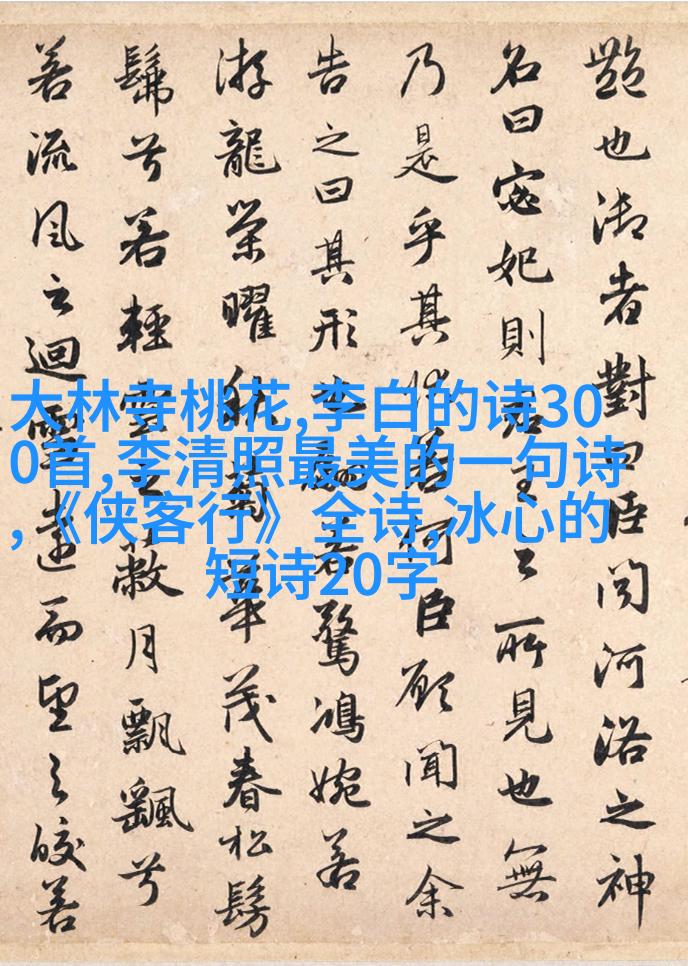 大林寺桃花,李白的诗30
0首,李清照最美的一句诗
,《侠客行》全诗,冰心的
短诗20字
艷也御者對曰臣聞河洛之神
名曰宓妃則君王之所見也無
乃是乎其狀若何臣願聞之余
告之曰其形也翩若驚鴻婉若
游龍榮曜秋菊華茂春松髣
髴兮若輕雲之蔽月飄颻兮
若流風之迴雪遠而望之皎若